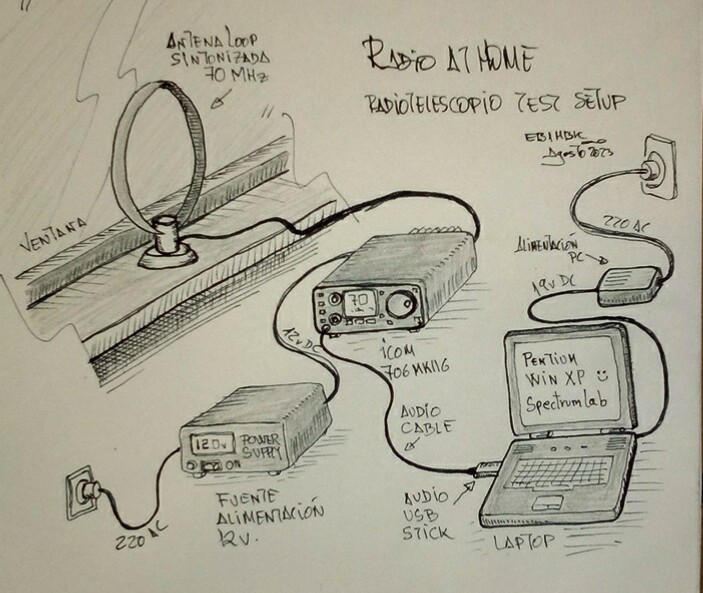 ANTENA LOOP
SINTONIZADA
70 MHz
RADIO AT HOME
RADIOTELESCOPIO TEST SETUP
EB1HBK
Agosto 2023
VENTANA
220 AC
ALIMENTACIÓN
PC
19V DC
70
12V DC
ICOM
706 MKIIG
PENTIUM
WIN XP
Spectrum Lab
AUDIO
CABLE
12.0V
POWER
SUPPLY
ON
FUENTE
ALIMENTACIÓN
12V.
220 AC
AUDIO
USB
STICK
LAPTOP